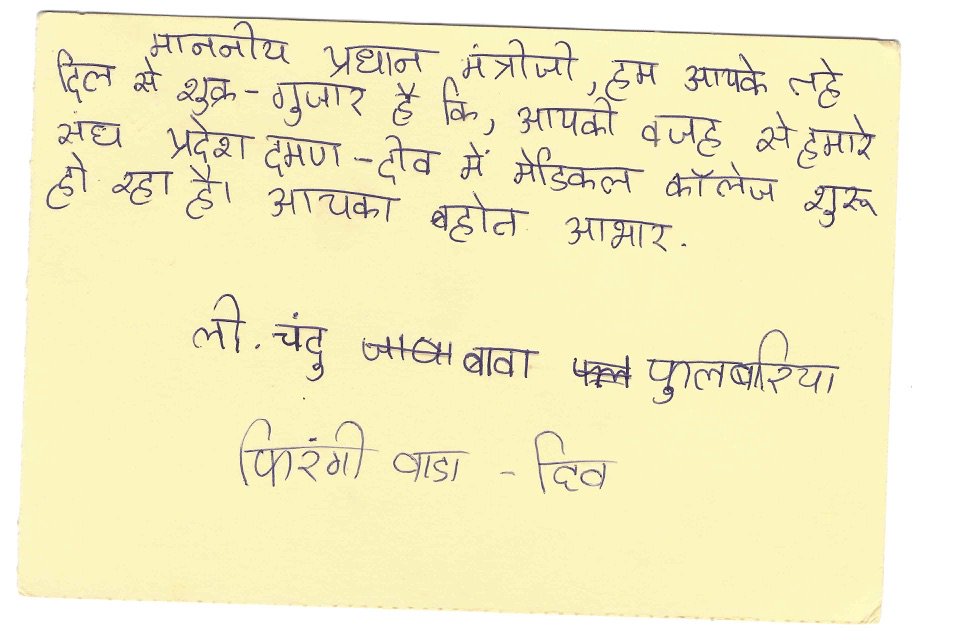 माननीय प्रधान मंत्रीजी, हम आपके तहे
दिल से शुक्र-गुजार है कि, आपकी वजह से हमारे
संघ प्रदेश दमण-दीव में मेडिकल कॉलेज शुरू
हो रहा है। आपका बहोत आभार.
ली. चंदु बावा फुलबारिया
फिरंगी वाडा - दिव